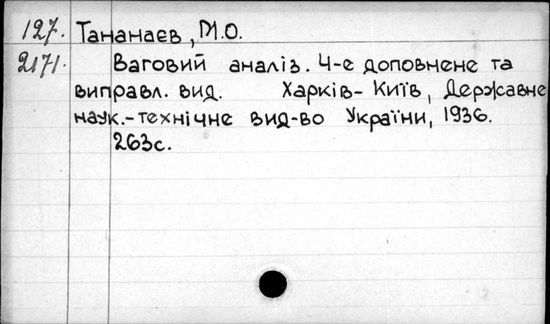 127. Тананаєв, М.О.
2171. Ваговий аналіз. 4-е доповнене та
виправл. вид. Харків-Київ, Державне
наук.-технічне вид-во України, 1936.
263с.